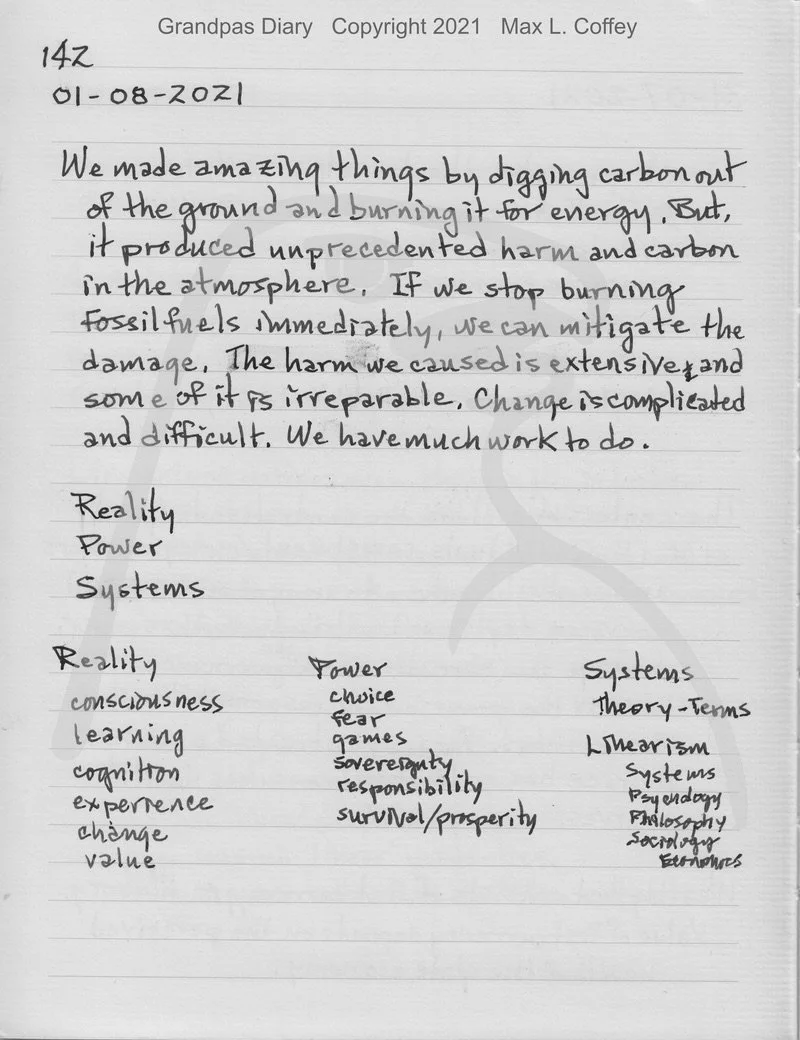 Grandpas Diary Copyright 2021 Max L. Coffey
142
01-08-2021
We made amazing things by digging carbon out
of the ground and burning it for energy. But,
it produced unprecedented harm and carbon
in the atmosphere. If we stop burning
fossil fuels immediately, we can mitigate the
damage. The harm we caused is extensive, and
some of it is irreparable. Change is complicated
and difficult. We have much work to do.
Reality
Power
Systems
Reality
consciousness
learning
cognition
experience
change
value
Power
choice
fear
games
sovereignty
responsibility
survival/prosperity
Systems
Theory-Terms
Linearism
Systems
Psychology
Philosophy
Sociology
Economics